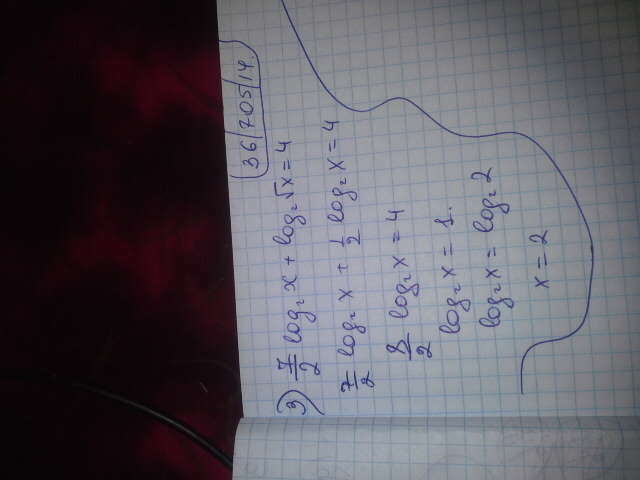 36/705/14.
3) 7/2 log₂ x + log₂ √x = 4
7/2 log₂ x + 1/2 log₂ x = 4
8/2 log₂ x = 4
log₂ x = 1.
log₂ x = log₂ 2
x = 2